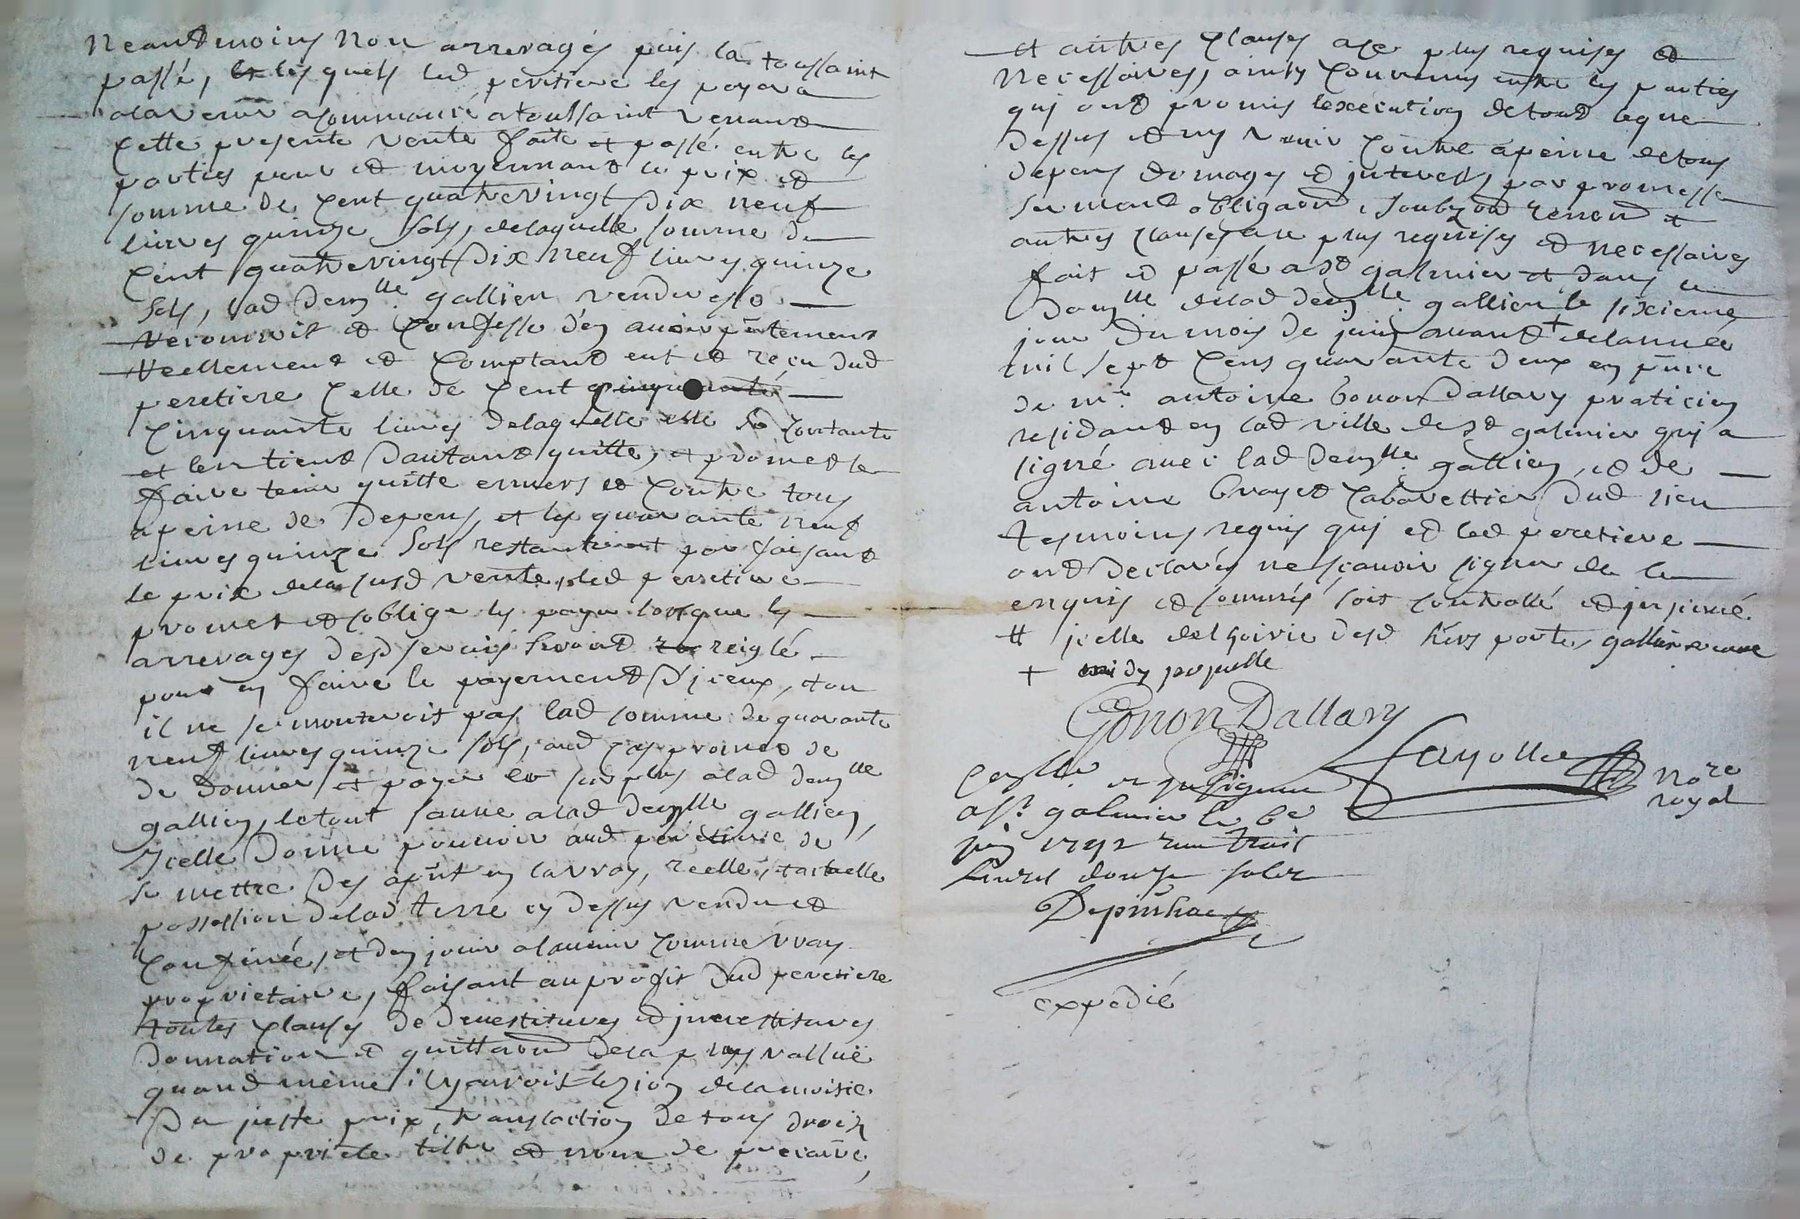 Neandmoins Non arrerages puis la toussaint
passé, lesquels led peretiere les payera
alavenir a commancer atoussaint venand
Cette presente vente faite et passé entre les
parties pour et moyennand le prix et
somme de Cent quatrevingt dix neuf
livres quinze sols, delaquelle somme de
Cent quatrevingt dix neuf livres quinze
sols, lad demlle gallien venderesse
reconnoit et Confesse d'en avoir pntement
reellement et Comptand eut et reçu dud
peretiere Celle de Cent cinquante
Cinquante livres delaquelle elle se Contante
et len tiend dautand quitte, et promet le
faire tenir quitte envers et Contre tous
apeine de depens, et les quarante neuf
livres quinze sols restant parfaisant
le prix dela susd vente, led peretiere
promet et soblige les payer lorsque les
arrerages desd servis seront reiglé
pour en faire le payement d'jceux, et ou
il ne se monteroit pas lad somme de quarante
neuf livres quinze sols, aud cas promet de
de donner et payer le surplus alad demlle
gallien, letout sauve alad demlle gallien,
Jcelle donne pouvoir aud peretiere de
se mettre des apnt en la vray, reelle, et actuelle
possession delad terre cy dessus vendu et
Confinée, et den jouir alavenir Comme vray
proprietaire, faisant au profit dud peretiere
toutes Clauses de devestitures et jnvestitures
donnation et quittaon dela plus valluë
quand même il y auroit lezion de la moitié
du juste prix, translaction de tous droits
de proprieté tiltre et nom de precaire,
et autres Clauses ace plus requises et
Necessaires, ainsy Convenus entre les parties
qui ont promis lexecution detout ceque
dessus et ny venir Contre apeine detous
depens domages et jnterests, par promesse
serment obligaon, soubzon renon et
autres Clauses ace plus requises et necessaires
fait et passé a St galmier et dans le
domlle delad demlle gallien le sixieme
jour du mois de juin avant + delannée
mil sept Cens quarante deux en pnce
de mr antoine Gonon Dallary praticien
residant en lad ville de St galmier qui a
signé avec lad demlle gallien, et de
antoine brayet Cabarettier dud lieu
tesmoins requis qui et led peretiere
ont declarés ne sçavoir signer de ce
enquis et sommés soit Controllé et jnsinué
# jcelle del hoirie desd hers porte, gallien veuve
+ midy
Gonon Dallary
fayolle
Nore
royal
Conlle et jnsignué
a St galmier le 6e
juin 1742 reçu trois
livres douze sols
Depinhac
expedié